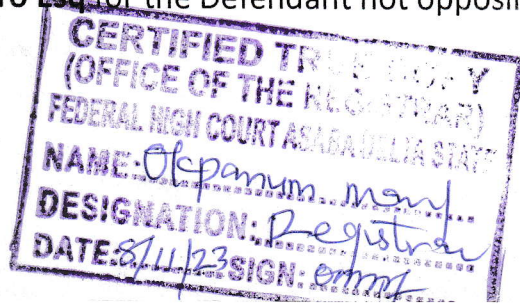 Esq for the Defendant not opposi
CERTIFIED TRUE COPY
(OFFICE OF THE REGISTRAR)
FEDERAL HIGH COURT ASABA DELTA STATE
NAME: Okpanum mary
DESIGNATION: Registrar
DATE: 8/11/23 SIGN: